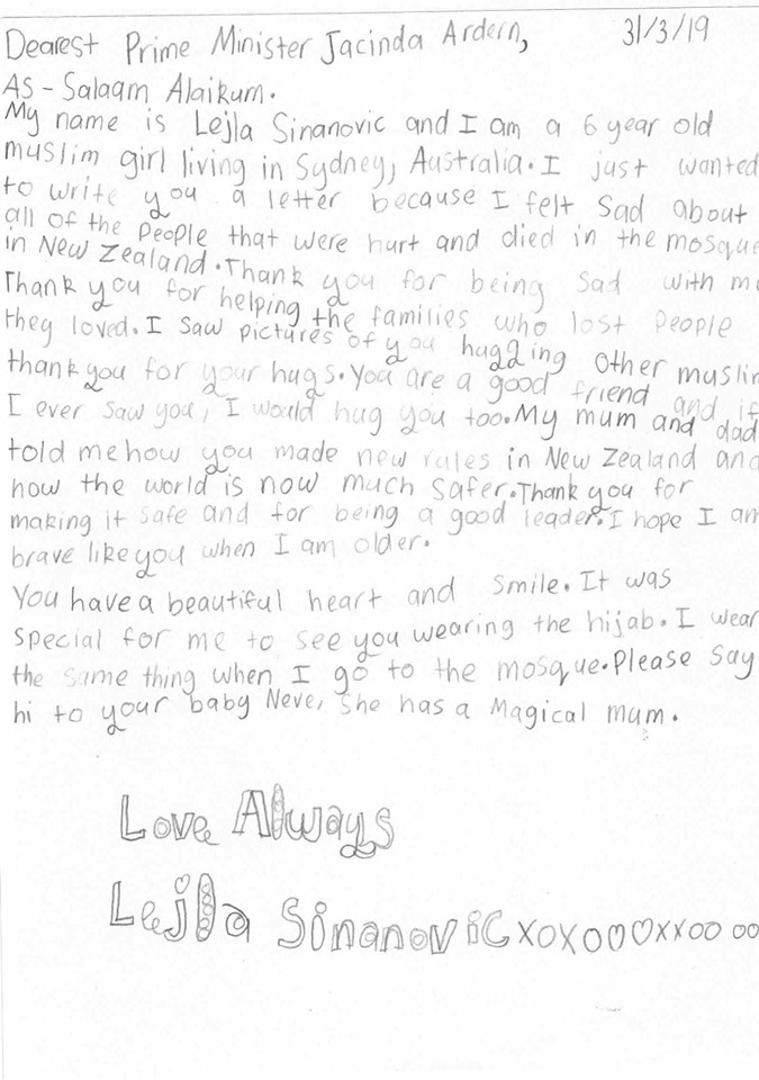 Dearest Prime Minister Jacinda Ardern, 31/3/19
AS - Salaam Alaikum.
My name is Lejla Sinanovic and I am a 6 year old
muslim girl living in Sydney, Australia. I just wanted
to write you a letter because I felt Sad about
all of the people that were hurt and died in the mosque
in New Zealand. Thank you for being Sad with
Thank you for helping the families who lost people
they loved. I Saw pictures of you hugging other muslim
thank you for your hugs. You are a good friend and if
I ever saw you, I would hug you too. My mum and dad
told me how you made new rules in New Zealand and
how the world is now much Safer. Thank you for
making it safe and for being a good leader. I hope I am
brave like you when I am older.
You have a beautiful heart and Smile. It was
Special for me to see you wearing the hijab. I wear
the same thing when I go to the mosque. Please Say
hi to your baby Neve, She has a Magical mum.
Love Always
Lejla Sinanovic xoxoooxxoo oo